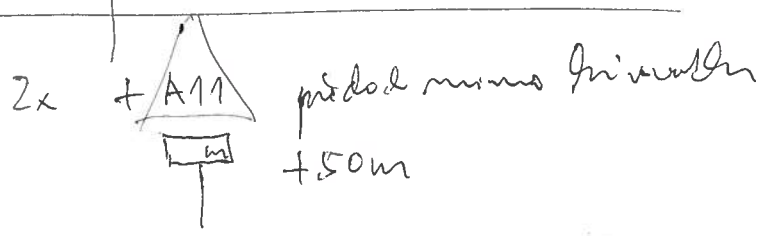 2x + A11 přechod mimo křižovatku
m +50m